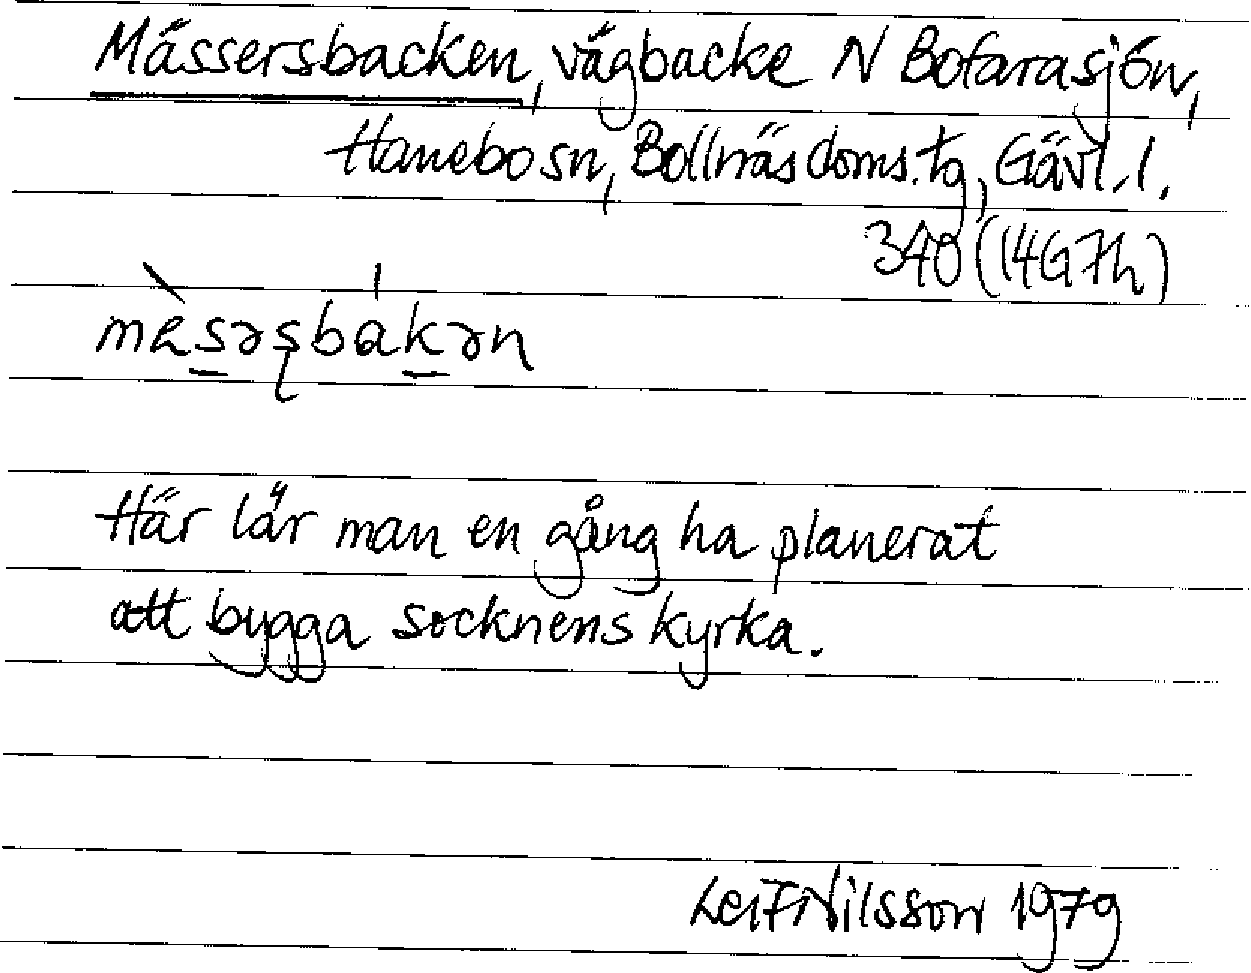 Mässersbacken, vägbacke N Bofarasjön,
Hanebo sn, Bollnäs doms. tg, Gävl. l.
340 (14G7h)
mèsəʂbákən
Här lär man en gång ha planerat
att bygga socknens kyrka.
Leif Nilsson 1979